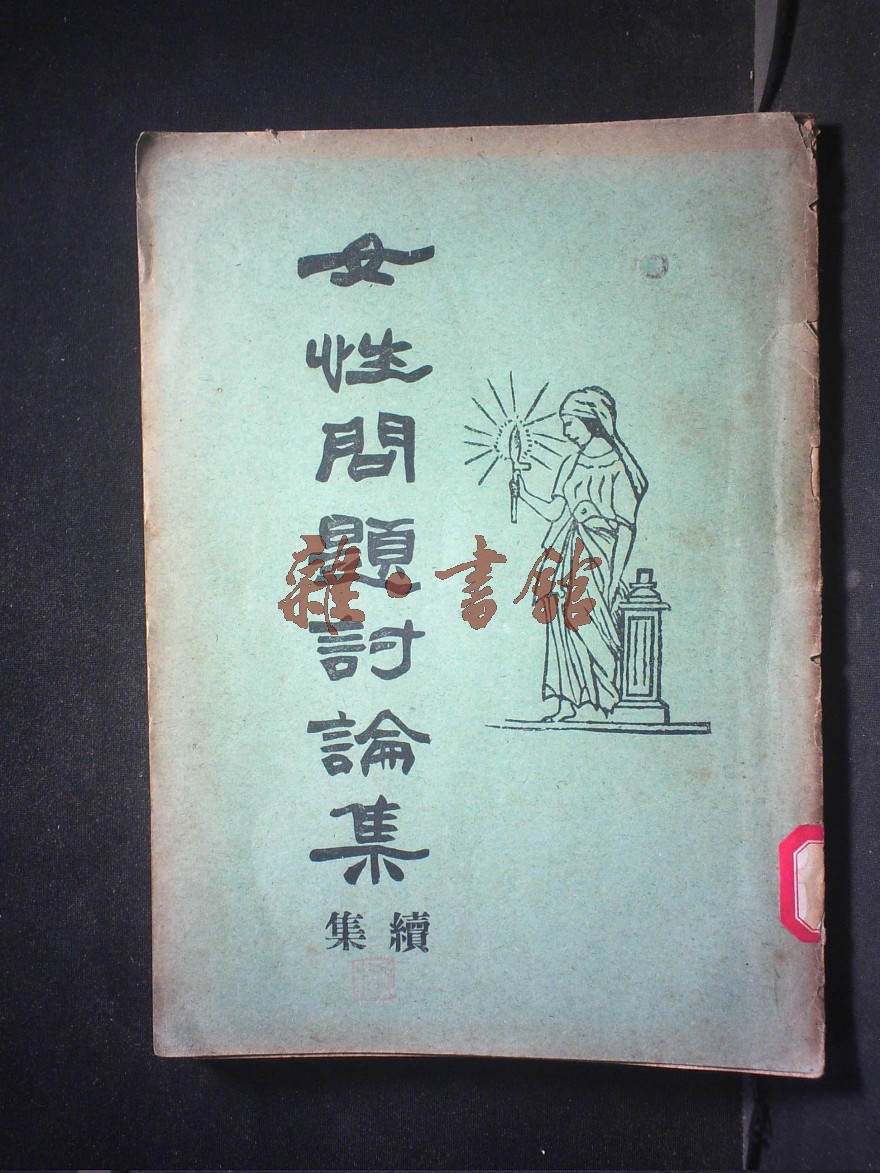 女性問題討論集
續集
雜·書館